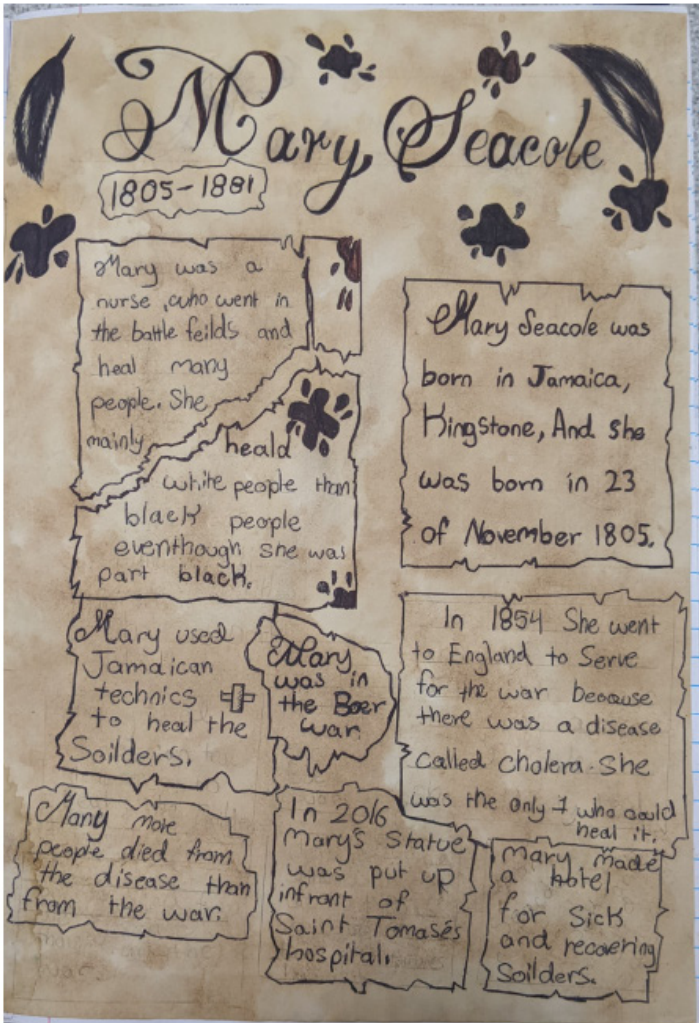 Mary Seacole
1805-1881
Mary was a
nurse, who went in
the battle feilds and
heal many
people. She
mainly
heald
white people than
black people
eventhough she was
part black.
Mary Seacole was
born in Jamaica,
Kingstone, And she
was born in 23
of November 1805.
Mary used
Jamaican
technics
to heal the
Soilders.
Mary
was in
the Boer
war
In 1854 She went
to England to Serve
for the war because
there was a disease
called cholera. She
was the only 1 who could
heal it.
Many more
people died from
the disease than
from the war.
In 2016
Mary's Statue
was put up
infront of
Saint Tomasés
hospital.
Mary made
a hotel
for Sick
and recovering
Soilders.